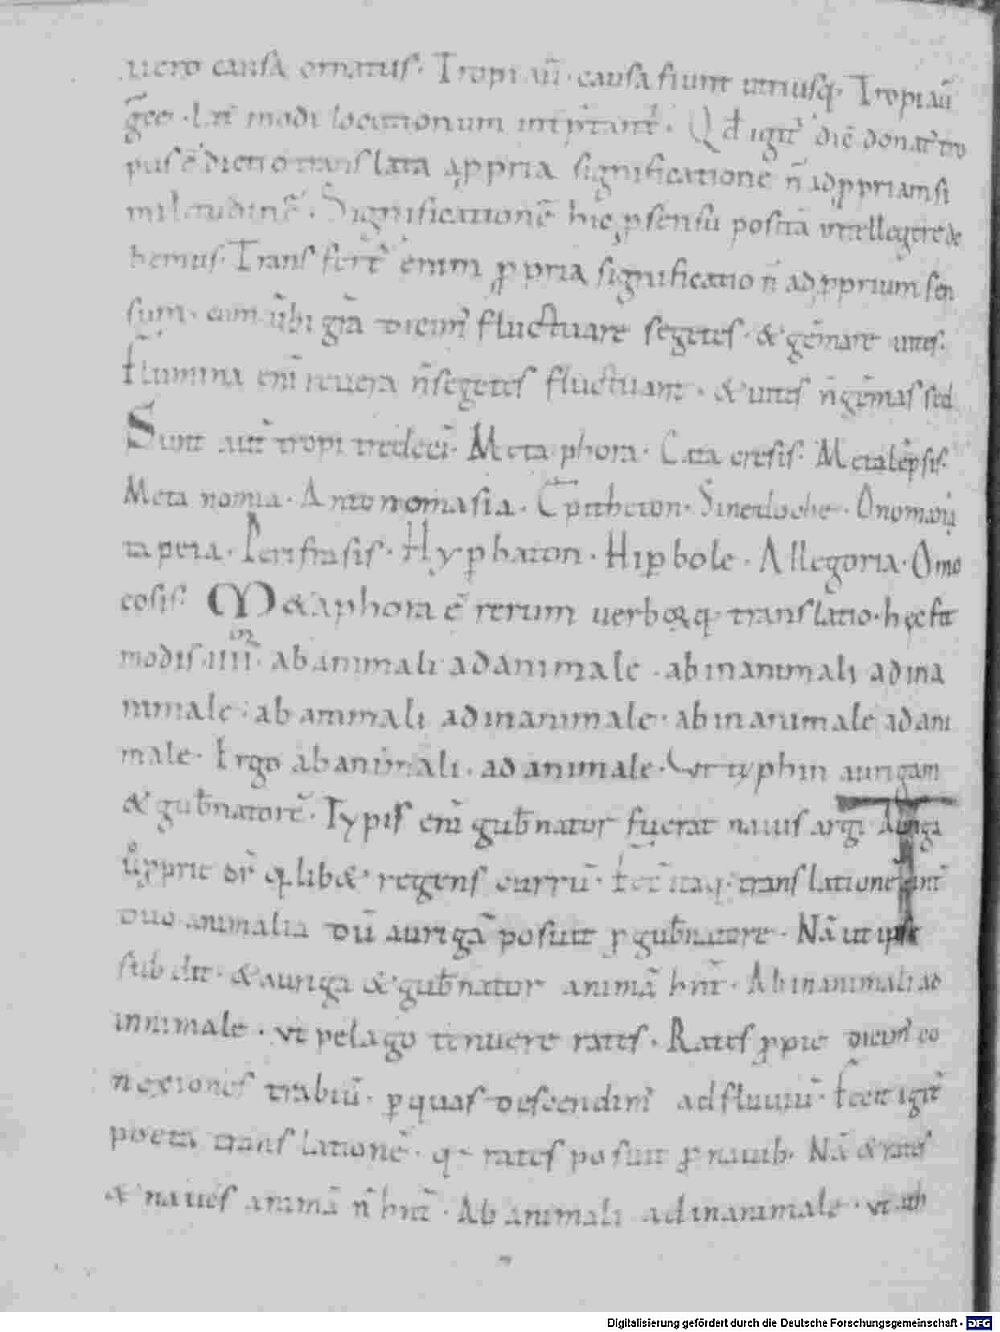 uero causa ornatus. Tropi aū causa fiunt utriusq; Tropi aū
gce. Lat̄ modi locutionum int̄ptant̄. Qd̄ igit̄ dic̄ donat̄ tro
pus ē dictio translata a ꝓpria significatione n̄ ad ꝓpriam si
militudinē. Significationē hic ꝓ sensu positā intellegere de
bemus. Transfert̄ enim ꝓpria significatio n̄ ad ꝓprium sen
sum. cum ūbi grā dicim̄ fluctuare segetes. & gēmare uites.
Flumina eni̅ reuera n̄ segetes fluctuant. & uites n̄ gēmas sed
Sunt aut̄ tropi tredeci̅. Metaphora. Catacresis. Metalēpsis.
Metanomia. Antonomasia. Epitheton. Sinecdoche. Onomatu
tapeia. Perifrasis. Hyꝑbaton. Hiꝑbole. Allegoria. Omo
eosis. M&aphora ē rerum uerboꝝq; translatio. hęc fit
modis iiii. ab animali ad animale. ab inanimali ad ina
nimale. ab animali ad inanimale. ab inanimale ad ani
male. Ergo ab animali. ad animale. Ut typhin aurigam
& gub̄natorē. Typis eni̅ gub̄nator fuerat nauis argi Auriga
ū ꝓprie dr̄ qlib& regens currū. Fec̄ itaq; translatione int̄
duo animalia dū aurigā posuit ꝓ gub̄natore. Nā ut ipse
subdit. & auriga & gub̄nator animā hn̄t. Ab inanimali ad
innimale. ut pelago tenuere rates. Rates ꝓpie dicun̄ co
nexiones trabiū. ꝑ quas descendim̄ ad fluuiū. Fecit igit̄
poeta translationē. q rates posuit ꝓ nauib. Nā & rates
& naues animā n̄ hn̄t. Ab animali ad inanimale. ut